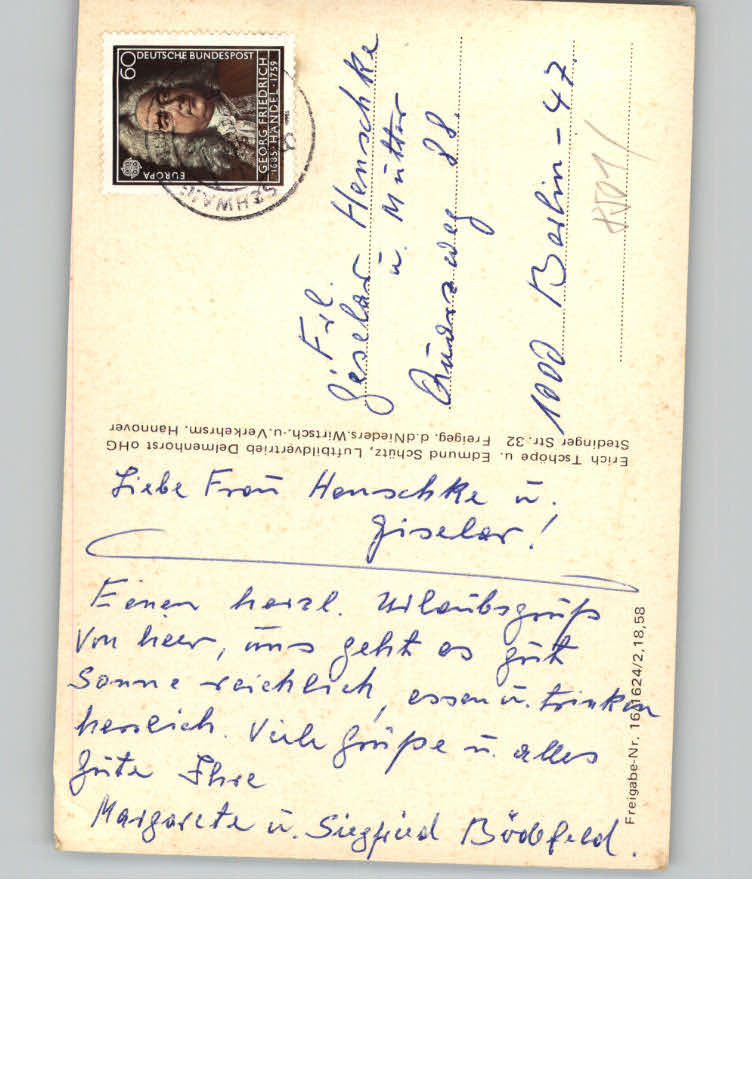 Liebe Frau Henschke u.
Giselar!
Einen herzl. Urlaubsgruß
von hier, uns geht es gut
Sonne reichlich, essen u. trinken
herrlich. Viele Grüße u. alles
Gute Ihre
Margarete u. Siegfried Bödefeld.
Frl.
Giselar Henschke
u. Mutter
88.
1000 Berlin-47.
DEUTSCHE BUNDESPOST
60
GEORG FRIEDRICH
1685 · HÄNDEL · 1759
EUROPA
Erich Tschöpe u. Edmund Schütz, Luftbildvertrieb Delmenhorst oHG
Stedinger Str. 32 Freigeg. d. Nieders. Wirtsch.-u. Verkehrsm. Hannover
Freigabe-Nr. 16/1624/2,18,58